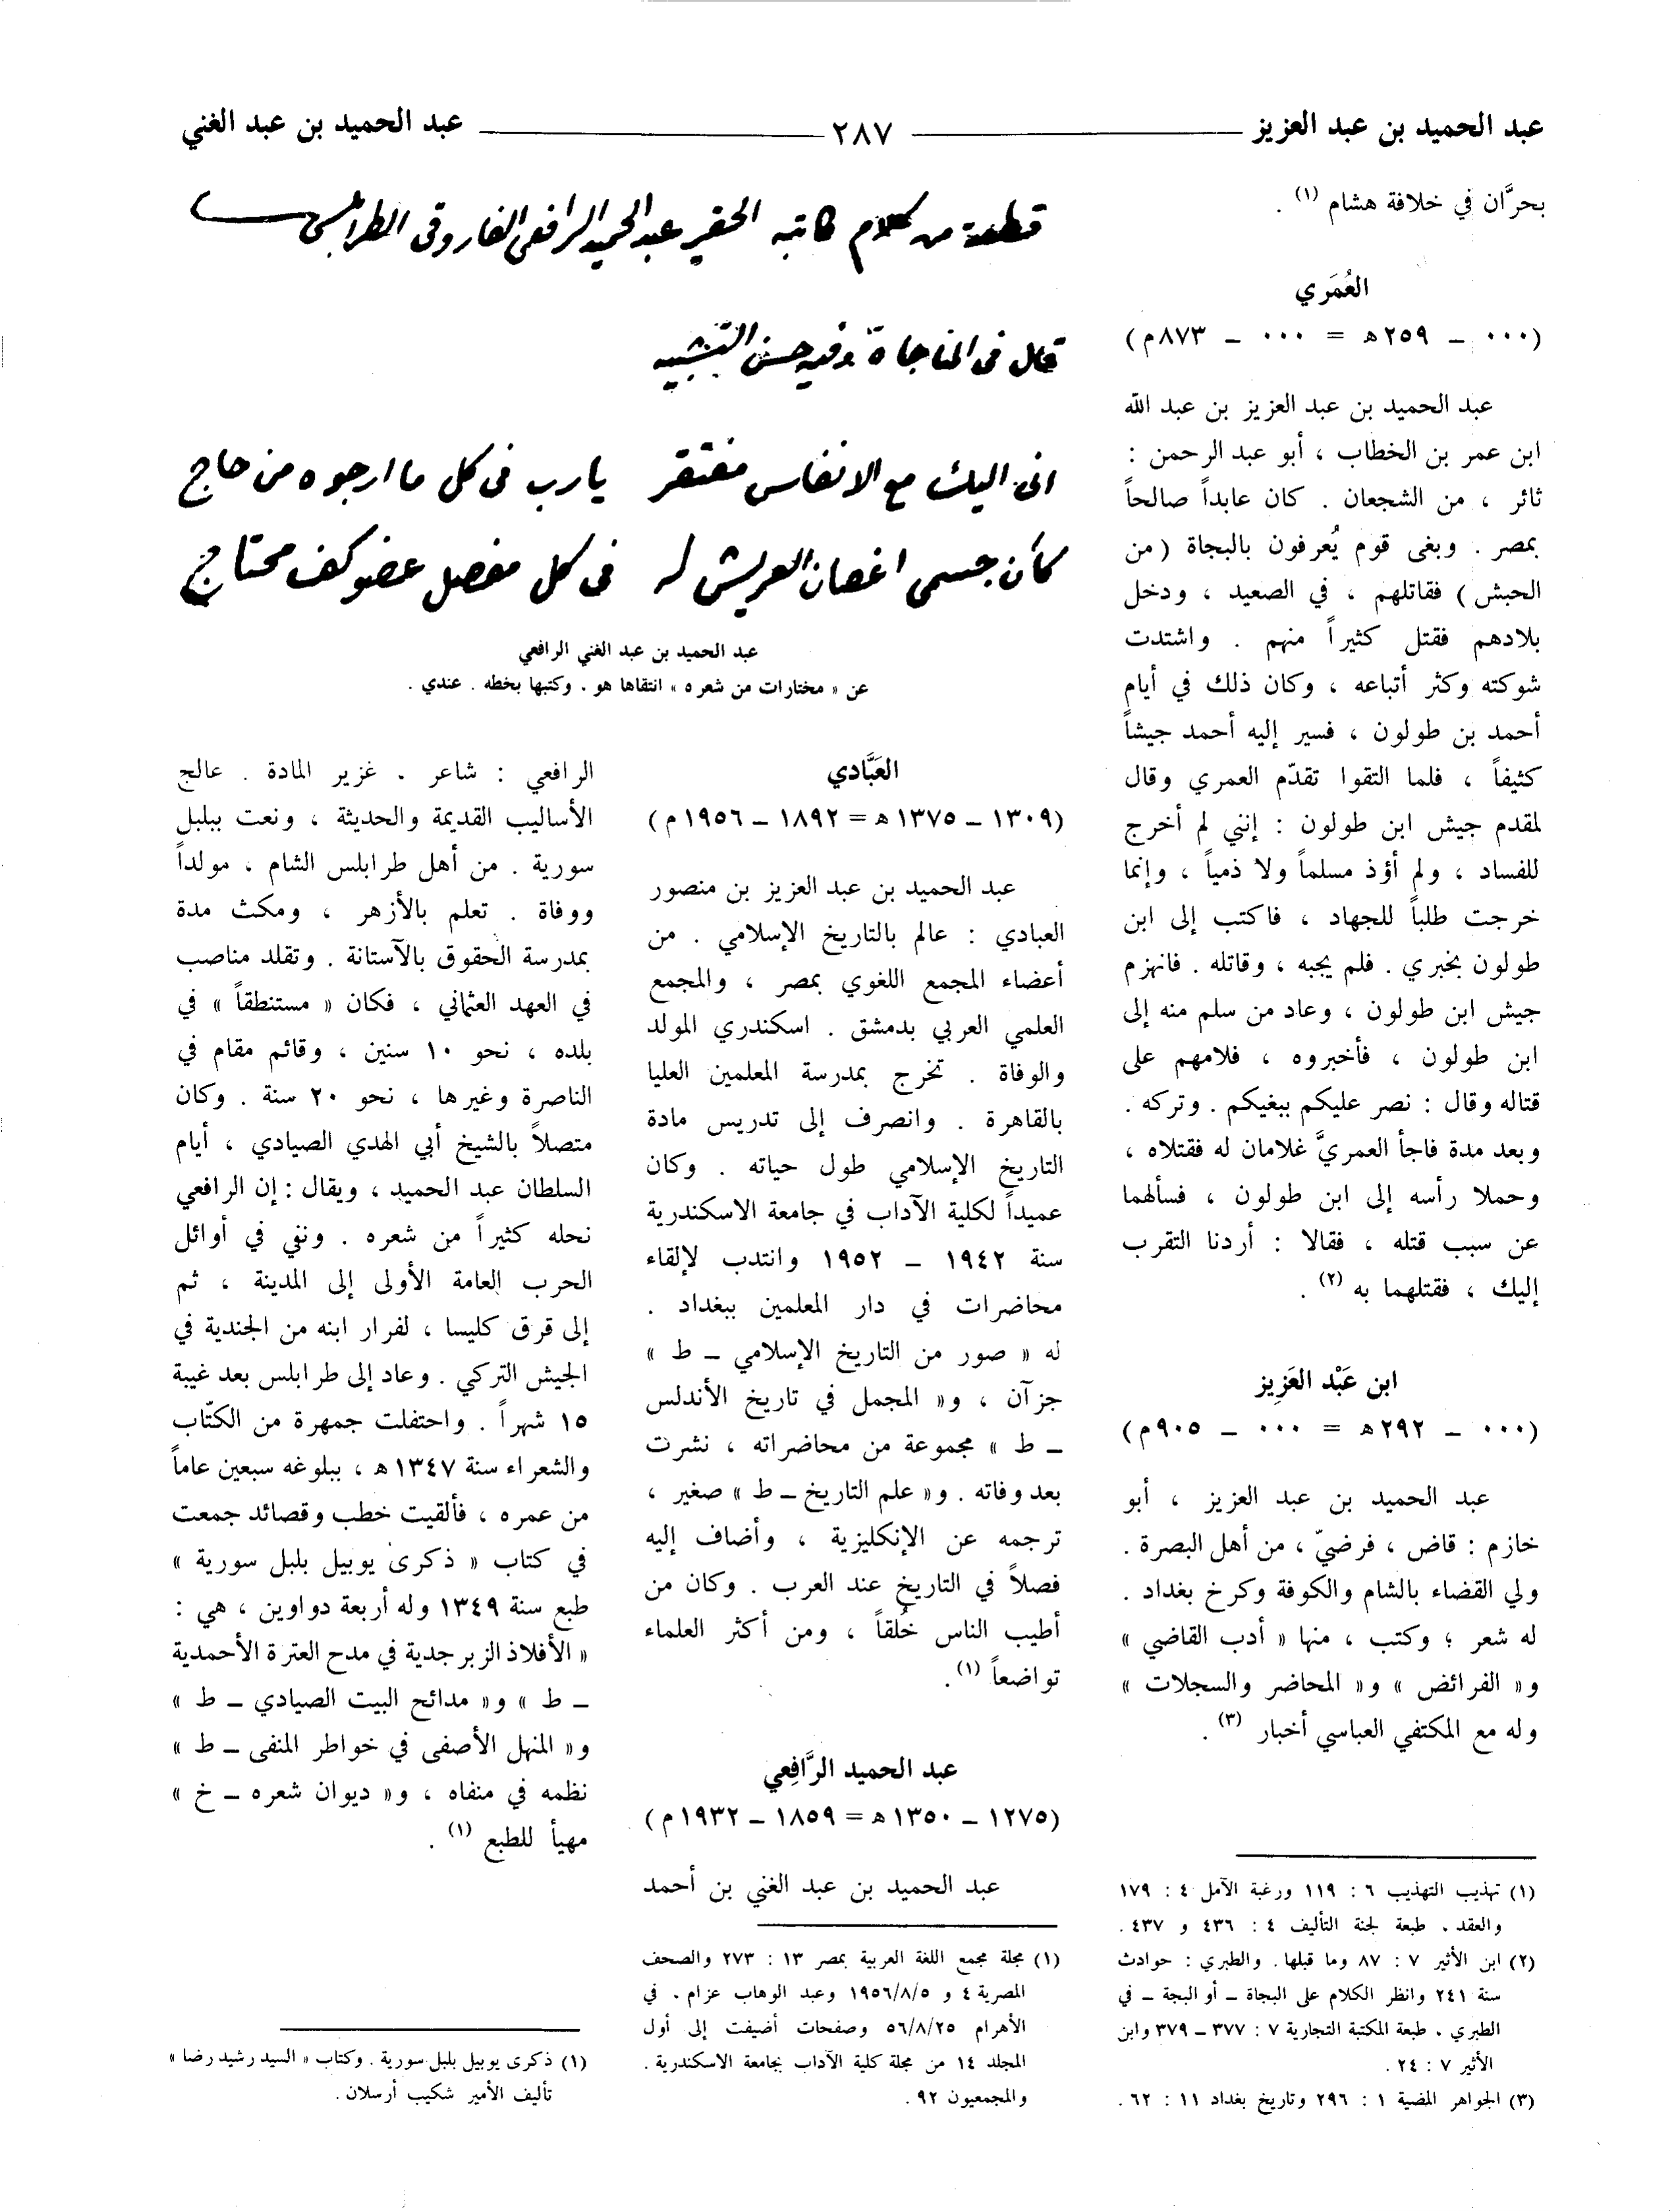 عبد الحميد بن عبد العزيز
٢٨٧
عبد الحميد بن عبد الغني
بحرَّان في خلافة هشام (١) .
العُمَري
(٠٠٠ ـ ٢٥٩ه = ٠٠٠ ـ ٨٧٣م)
عبد الحميد بن عبد العزيز بن عبد الله
ابن عمر بن الخطاب ، أبو عبد الرحمن :
ثائر ، من الشجعان . كان عابداً صالحاً
بمصر . وبغى قوم يُعرفون بالبجاة (من
الحبش) فقاتلهم ، في الصعيد ، ودخل
بلادهم فقتل كثيراً منهم . واشتدت
شوكته وكثر أتباعه ، وكان ذلك في أيام
أحمد بن طولون ، فسير إليه أحمد جيشاً
كثيفاً ، فلما التقوا تقدّم العمري وقال
لمقدم جيش ابن طولون : إنني لم أخرج
للفساد ، ولم أؤذ مسلماً ولا ذمياً ، وإنما
خرجت طلباً للجهاد ، فاكتب إلى ابن
طولون بخبري . فلم يجبه ، وقاتله . فانهزم
جيش ابن طولون ، وعاد من سلم منه إلى
ابن طولون ، فأخبروه ، فلامهم على
قتاله وقال : نصر عليكم ببغيكم . وتركه .
وبعد مدة فاجأ العمريَّ غلامان له فقتلاه ،
وحملا رأسه إلى ابن طولون ، فسألهما
عن سبب قتله ، فقالا : أردنا التقرب
إليك ، فقتلهما به (٢) .
ابن عَبْد العَزِيز
(٠٠٠ ـ ٢٩٢ه = ٠٠٠ ـ ٩٠٥م)
عبد الحميد بن عبد العزيز ، أبو
خازم : قاض ، فرضيّ ، من أهل البصرة .
ولي القضاء بالشام والكوفة وكرخ بغداد .
له شعر ؛ وكتب ، منها « أدب القاضي »
و« الفرائض » و« المحاضر والسجلات »
وله مع المكتفي العباسي أخبار (٣) .
(١) تهذيب التهذيب ٦ : ١١٩ ورغبة الآمل ٤ : ١٧٩
والعقد ، طبعة لجنة التأليف ٤ : ٤٣٦ و ٤٣٧ .
(٢) ابن الأثير ٧ : ٨٧ وما قبلها . والطبري : حوادث
سنة ٢٤١ وانظر الكلام على البجاة ـ أو البجة ـ في
الطبري ، طبعة المكتبة التجارية ٧ : ٣٧٧ ـ ٣٧٩ وابن
الأثير ٧ : ٢٤ .
(٣) الجواهر المضية ١ : ٢٩٦ وتاريخ بغداد ١١ : ٦٢ .
قطعة من كلام كاتبه الحقير عبد الحميد الرافعى الفاروقى الطرابلسى
قال فى المناجاة وفيه حسن التشبيه
انى اليك مع الانفاس مفتقر يارب فى كل ما ارجوه من حاج
كأن جسمى اغصان العريش له فى كل مفصل عضو كف محتاج
عبد الحميد بن عبد الغني الرافعي
عن « مختارات من شعره » انتقاها هو . وكتبها بخطه . عندي .
العَبَّادي
(١٣٠٩ ـ ١٣٧٥ ه = ١٨٩٢ ـ ١٩٥٦ م)
عبد الحميد بن عبد العزيز بن منصور
العبادي : عالم بالتاريخ الإسلامي . من
أعضاء المجمع اللغوي بمصر ، والمجمع
العلمي العربي بدمشق . اسكندري المولد
والوفاة . تخرج بمدرسة المعلمين العليا
بالقاهرة . وانصرف إلى تدريس مادة
التاريخ الإسلامي طول حياته . وكان
عميداً لكلية الآداب في جامعة الاسكندرية
سنة ١٩٤٢ ـ ١٩٥٢ وانتدب لإلقاء
محاضرات في دار المعلمين ببغداد .
له « صور من التاريخ الإسلامي ـ ط »
جزآن ، و« المجمل في تاريخ الأندلس
ـ ط » مجموعة من محاضراته ، نشرت
بعد وفاته . و« علم التاريخ ـ ط » صغير ،
ترجمه عن الإنكليزية ، وأضاف إليه
فصلاً في التاريخ عند العرب . وكان من
أطيب الناس خُلقاً ، ومن أكثر العلماء
تواضعاً (١) .
عبد الحميد الرَّافِعي
(١٢٧٥ ـ ١٣٥٠ ه = ١٨٥٩ ـ ١٩٣٢ م)
عبد الحميد بن عبد الغني بن أحمد
(١) مجلة مجمع اللغة العربية بمصر ١٣ : ٢٧٣ والصحف
المصرية ٤ و ١٩٥٦/٨/٥ وعبد الوهاب عزام ، في
الأهرام ٥٦/٨/٢٥ وصفحات أضيفت إلى أول
المجلد ١٤ من مجلة كلية الآداب بجامعة الاسكندرية .
والمجمعيون ٩٢ .
الرافعي : شاعر ، غزير المادة . عالج
الأساليب القديمة والحديثة ، ونعت ببلبل
سورية . من أهل طرابلس الشام ، مولداً
ووفاة . تعلم بالأزهر ، ومكث مدة
بمدرسة الحقوق بالآستانة . وتقلد مناصب
في العهد العثماني ، فكان « مستنطقاً » في
بلده ، نحو ١٠ سنين ، وقائم مقام في
الناصرة وغيرها ، نحو ٢٠ سنة . وكان
متصلاً بالشيخ أبي الهدي الصيادي ، أيام
السلطان عبد الحميد ، ويقال : إن الرافعي
نحله كثيراً من شعره . ونفي في أوائل
الحرب العامة الأولى إلى المدينة ، ثم
إلى قرق كليسا ، لفرار ابنه من الجندية في
الجيش التركي . وعاد إلى طرابلس بعد غيبة
١٥ شهراً . واحتفلت جمهرة من الكتّاب
والشعراء سنة ١٣٤٧ ه ، ببلوغه سبعين عاماً
من عمره ، فألقيت خطب وقصائد جمعت
في كتاب « ذكرى يوبيل بلبل سورية »
طبع سنة ١٣٤٩ وله أربعة دواوين ، هي :
« الأفلاذ الزبرجدية في مدح العترة الأحمدية
ـ ط » و« مدائح البيت الصيادي ـ ط »
و« المنهل الأصفى في خواطر المنفى ـ ط »
نظمه في منفاه ، و« ديوان شعره ـ خ »
مهيأ للطبع (١) .
(١) ذكرى يوبيل بلبل سورية . وكتاب « السيد رشيد رضا »
تأليف الأمير شكيب أرسلان .